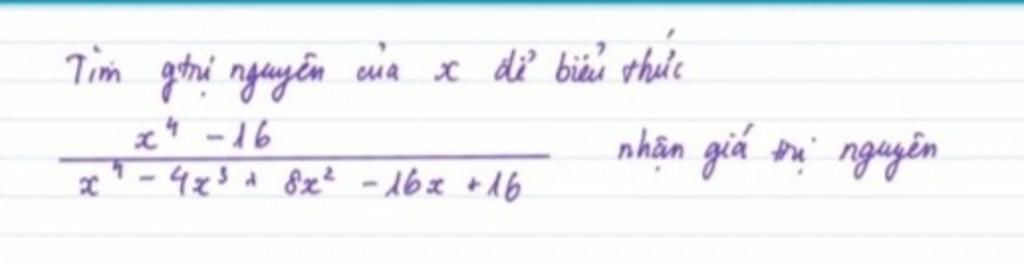 Tìm gtrị nguyên của x để biểu thức
x⁴ - 16
x⁴ - 4x³ + 8x² - 16x + 16 nhận giá trị nguyên